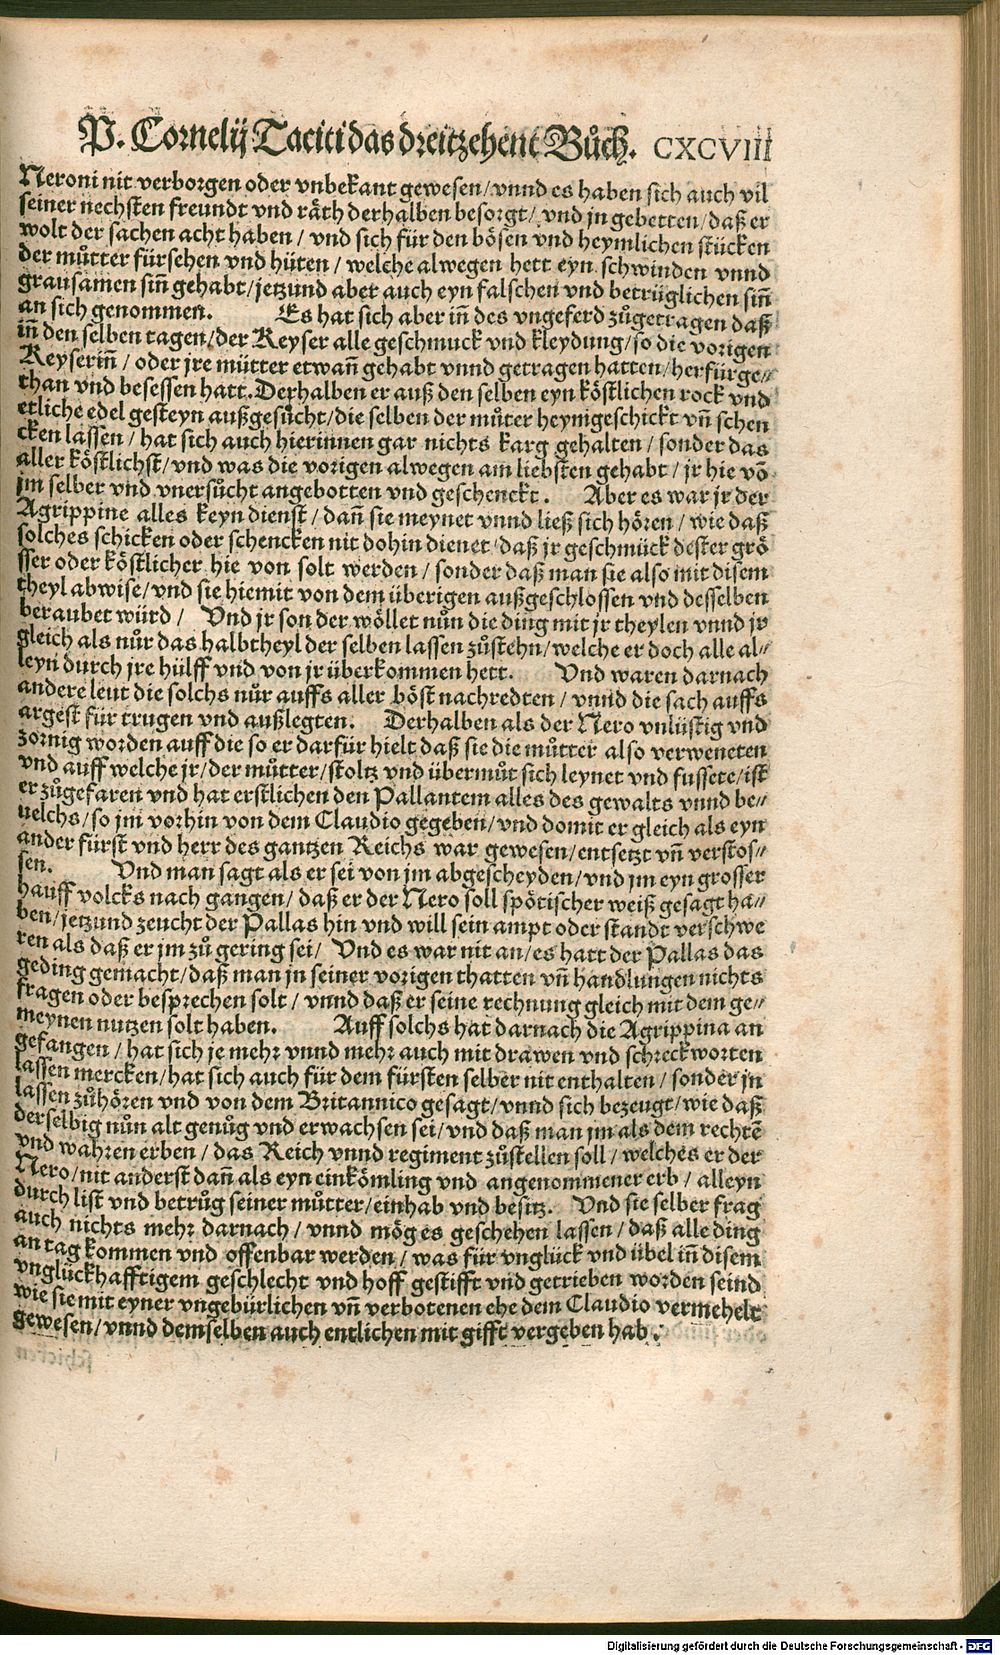 P. Cornelij Taciti das dreitzehent Bůch. CXCVIII
Neroni nit verborgen oder vnbekant gewesen/vnnd es haben sich auch vil
seiner nechsten freundt vnd räth derhalben besorgt/ vnd jn gebetten/daß er
wolt der sachen acht haben / vnd sich für den bösen vnd heymlichen stücken
der můtter fürsehen vnd hüten / welche alwegen hett eyn schwinden vnnd
grausamen sin̄ gehabt/jetzund aber auch eyn falschen vnd betrüglichen sin̄
an sich genommen. Es hat sich aber in̄ des vngeferd zůgetragen daß
in̄ den selben tagen/der Keyser alle geschmuck vnd kleydung/so die vorigen
Keyserin̄ / oder jre mütter etwan̄ gehabt vnnd getragen hatten/herfürge⸗
than vnd besessen hatt. Derhalben er auß den selben eyn köstlichen rock vnd
etliche edel gesteyn außgesůcht/die selben der můter heymgeschickt vn̄ schen
cken lassen / hat sich auch hierinnen gar nichts karg gehalten / sonder das
aller köstlichst/vnd was die vorigen alwegen am liebsten gehabt / jr hie vō
jm selber vnd vnersůcht angebotten vnd geschenckt. Aber es war jr der
Agrippine alles keyn dienst / dan̄ sie meynet vnnd ließ sich hören / wie daß
solches schicken oder schencken nit dohin dienet daß jr geschmück dester grö
sser oder köstlicher hie von solt werden / sonder daß man sie also mit disem
theyl abwise/vnd sie hiemit von dem überigen außgeschlossen vnd desselben
beraubet würd / Vnd jr son der wöllet nůn die ding mit jr theylen vnnd jr
gleich als nůr das halbtheyl der selben lassen zůstehn/welche er doch alle al⸗
leyn durch jre hülff vnd von jr überkommen hett. Vnd waren darnach
andere leut die solchs nůr auffs aller böst nachredten / vnnd die sach auffs
argest für trugen vnd außlegten. Derhalben als der Nero vnlüstig vnd
zornig worden auff die so er darfür hielt daß sie die můtter also verweneten
vnd auff welche jr/der můtter/stoltz vnd übermůt sich leynet vnd fussete/ist
er zůgefaren vnd hat erstlichen den Pallantem alles des gewalts vnnd be⸗
uelchs/so jm vorhin von dem Claudio gegeben/vnd domit er gleich als eyn
ander fürst vnd herr des gantzen Reichs war gewesen/entsetzt vn̄ verstos⸗
sen. Vnd man sagt als er sei von jm abgescheyden/vnd jm eyn grosser
hauff volcks nach gangen / daß er der Nero soll spötischer weiß gesagt ha⸗
ben/jetzund zeucht der Pallas hin vnd will sein ampt oder standt verschwe
ren als daß er jm zů gering sei/ Vnd es war nit an/es hatt der Pallas das
geding gemacht/daß man jn seiner vorigen thatten vn̄ handlungen nichts
fragen oder besprechen solt / vnnd daß er seine rechnung gleich mit dem ge⸗
meynen nutzen solt haben. Auff solchs hat darnach die Agrippina an
gefangen / hat sich je mehr vnnd mehr auch mit drawen vnd schreckworten
lassen mercken/hat sich auch für dem fürsten selber nit enthalten / sonder jn
lassen zůhören vnd von dem Britannico gesagt/vnnd sich bezeugt/wie daß
derselbig nůn alt genůg vnd erwachsen sei/vnd daß man jm als dem rechtē
vnd wahren erben / das Reich vnnd regiment zůstellen soll / welches er der
Nero/nit anderst dan̄ als eyn einkömling vnd angenommener erb / alleyn
durch list vnd betrůg seiner můtter/einhab vnd besitz. Vnd sie selber frag
auch nichts mehr darnach / vnnd mög es geschehen lassen / daß alle ding
an tag kommen vnd offenbar werden / was für vnglück vnd übel in̄ disem
vnglückhafftigem geschlecht vnd hoff gestifft vnd getrieben worden seind
wie sie mit eyner vngebürlichen vn̄ verbotenen ehe dem Claudio vermehelt
gewesen/vnnd demselben auch entlichen mit gifft vergeben hab.
Digitalisierung gefördert durch die Deutsche Forschungsgemeinschaft - DFG